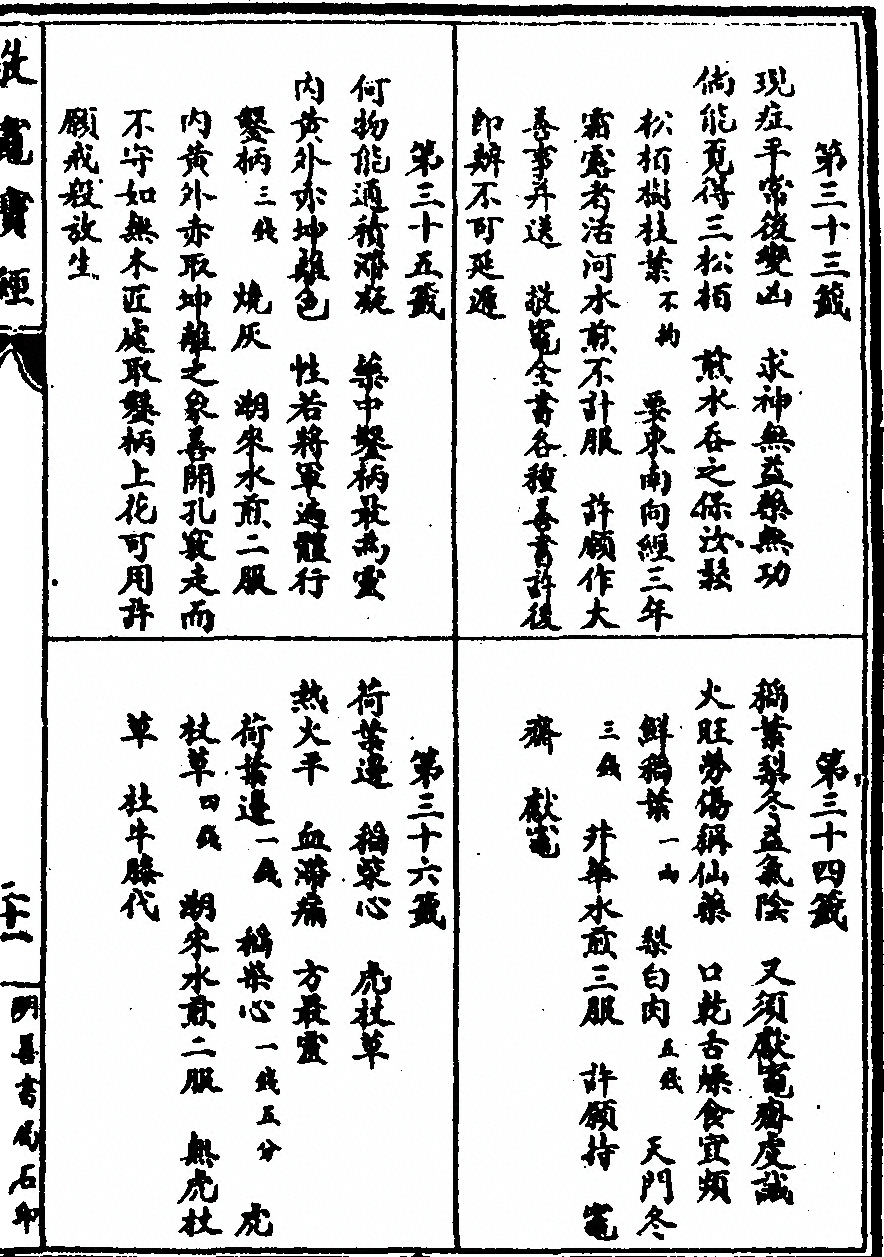 第三十三籤
現症平常後變凶　求神無益藥無功
倘能覓得三松柏　煎水吞之保汝鬆
松柏樹枝葉不拘　要東南向經三年
霜露者活河水煎不計服　許願作大
善事并送　敬竈全書各種善書許後
即辦不可延遲
第三十四籤
稻葉梨冬益氣陰　又須獻竈齋虔誠
火旺勞傷稱仙藥　口乾舌燥食宜頻
鮮稻葉一兩　梨白肉五錢　天門冬
三錢　井華水煎三服　許願持　竈
齋　獻竈
第三十五籤
何物能通積滯凝　藥中鑿柄最為靈
內黃外赤坤離色　性若將軍遍體行
鑿柄三錢　燒灰　潮來水煎二服
內黃外赤取坤離之象善開孔竅走而
不守如無木匠處取鑿柄上花可用許
願戒殺放生
第三十六籤
荷葉邊　稻葉心　虎杖草
熱火平　血滯痛　方最靈
荷葉邊一錢　稻葉心一錢五分　虎
杖草四錢　潮來水煎二服　無虎杖
草　杜牛膝代
敬竈寶經
二十一
明善書局石印